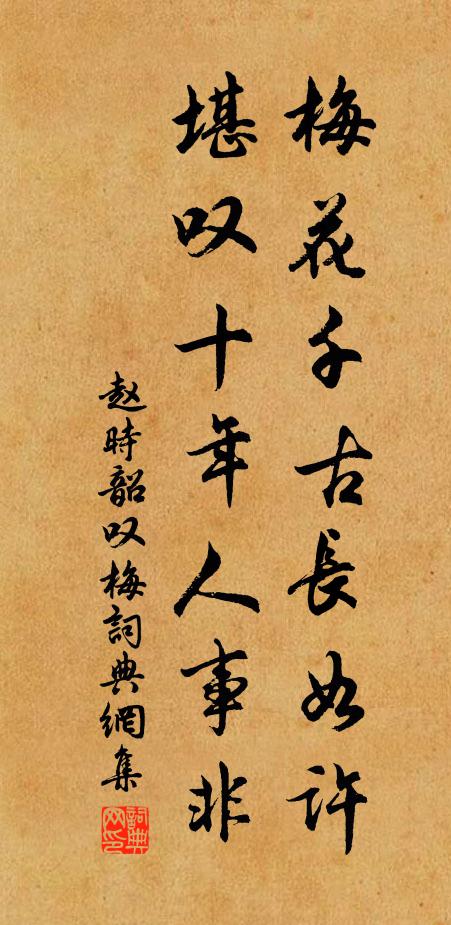 梅花千古長如許
堪叹十年人事非
赵時韶叹梅詞典網集
詞典网印